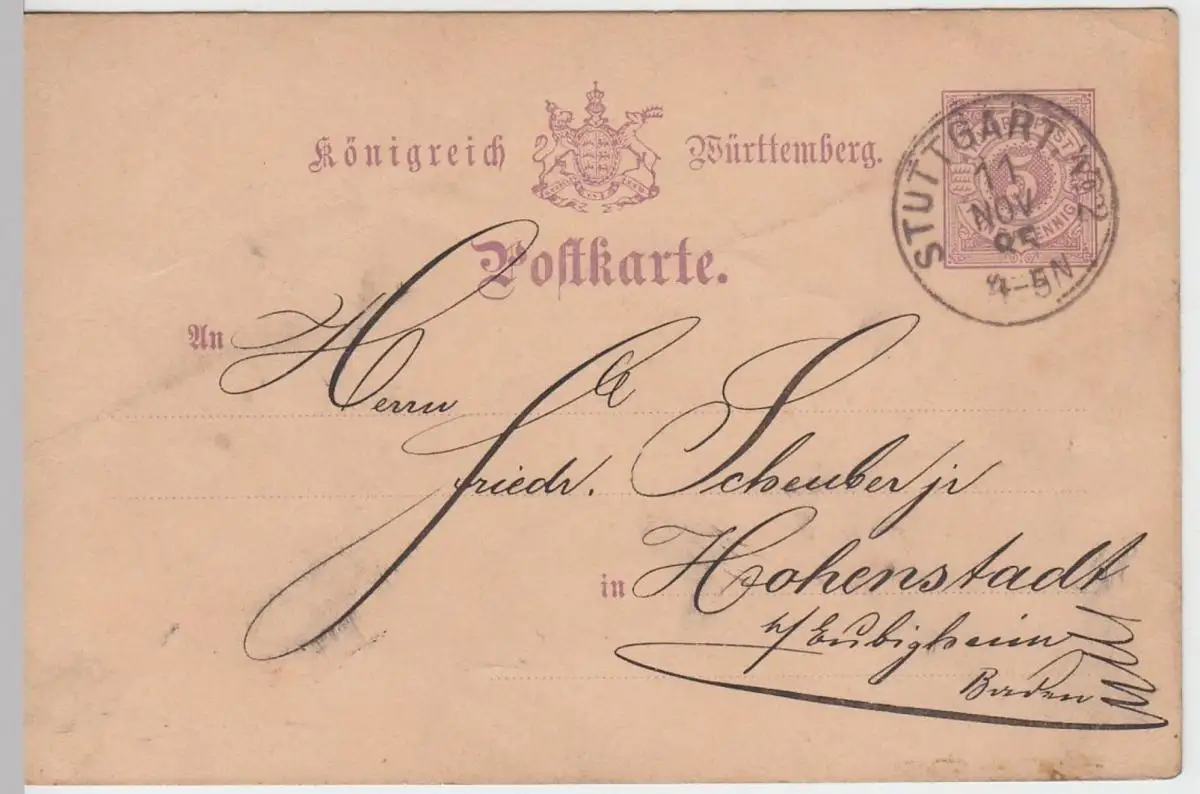 Königreich Württemberg.
Postkarte.
STUTTGART. Nº 2
11
NOV
85
4-5N
5
PFENNIG
An Herrn
Friedr. Scheuber jr
in Hohenstadt
b/ Eubigheim
Baden